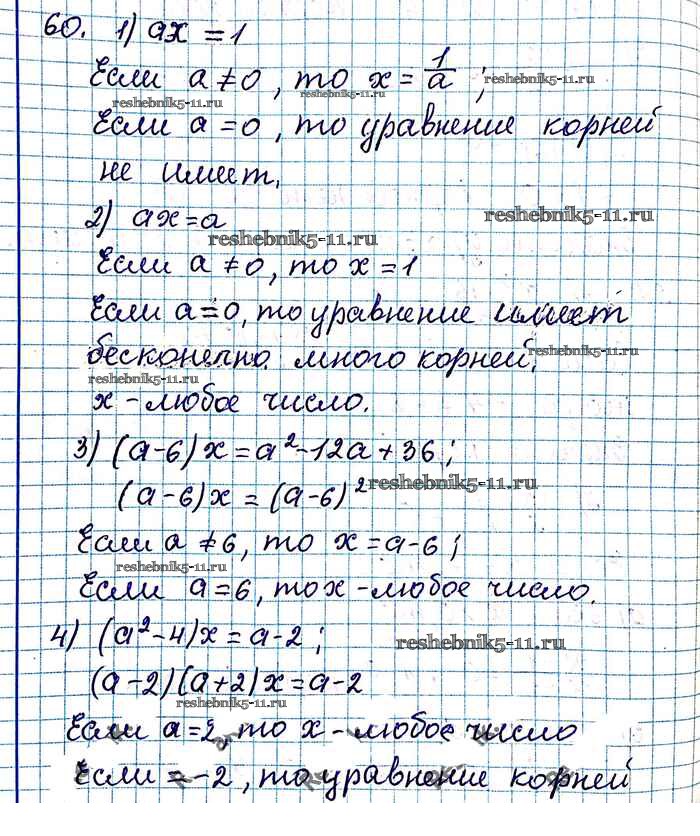 60. 1) ax = 1
Если a ≠ 0, то x = 1/a;
reshebnik5-11.ru
reshebnik5-11.ru
reshebnik5-11.ru
Если a = 0, то уравнение корней
не имеет.
2) ax = a
reshebnik5-11.ru
reshebnik5-11.ru
Если a ≠ 0, то x = 1
Если a = 0, то уравнение имеет
бесконечно много корней;
reshebnik5-11.ru
reshebnik5-11.ru
x - любое число.
3) (a-6)x = a² - 12a + 36;
(a-6)x = (a-6)²
reshebnik5-11.ru
Если a ≠ 6, то x = a-6;
reshebnik5-11.ru
Если a = 6, то x - любое число.
4) (a² - 4)x = a - 2;
reshebnik5-11.ru
(a-2)(a+2)x = a-2
reshebnik5-11.ru
Если a = 2, то x - любое число
Если = -2, то уравнение корней